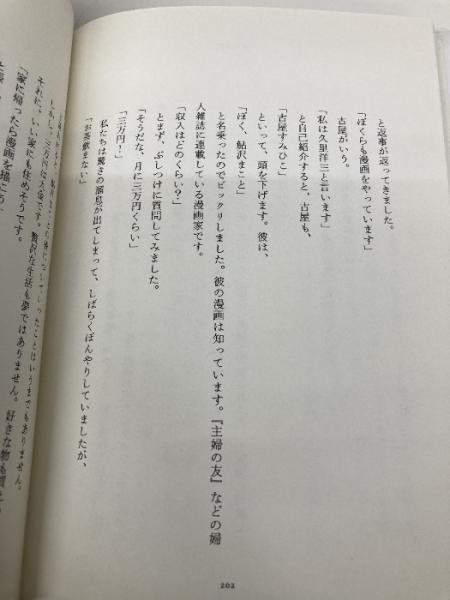 と返事が返ってきました。
「ぼくらも漫画をやっています」
古屋がいう。
「私は久里洋三と言います」
と自己紹介すると、古屋も、
「古屋すみひこ」
といって、頭を下げます。彼は、
「ぼく、鮎沢まこと」
と名乗ったのでビックリしました。彼の漫画は知っています。『主婦の友』などの婦
人雑誌に連載している漫画家です。
「収入はどのくらい?」
とまず、ぶしつけに質問してみました。
「そうだな、月に三万円くらい」
「三万円!」
私たちは驚きの溜息が出てしまって、しばらくぼんやりしていましたが、
「お茶飲まない」
三万円は大金です。贅沢な生活も夢ではありません。好きな物も買え
それに、いい家にも住めそうです。
「家に帰ったら漫画を描こう」
202